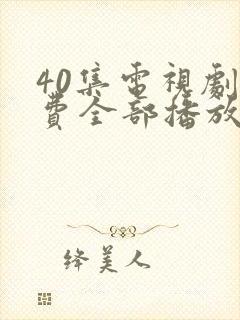 40集電視劇
費全部播放
绛美人